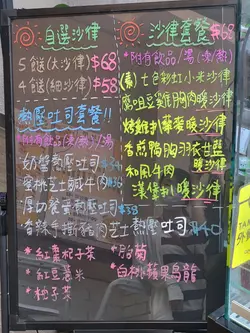 自選沙律
5餸(大沙律) $68
4餸(細沙律) $58
熱壓吐司套餐!!
*附有飲品(凍/熱)/湯
奶醬熱壓吐司
蜜桃芝士鹹牛肉
厚切餐蛋熱壓吐司 $38
香辣手撕豬肉芝士熱壓吐司 $40
*紅棗杞子茶
*紅豆薏米
*柚子茶
沙律套餐 $68
*附有飲品/湯(凍/熱)
(素)七色彩虹小米沙律
鷹咀豆雞胸肉暖沙律
烤雞扒藜麥暖沙律
香煎鴨胸羽衣甘藍
暖沙律
和風牛肉
漢堡扒暖沙律
*胎菊
*白桃蘋果烏龍